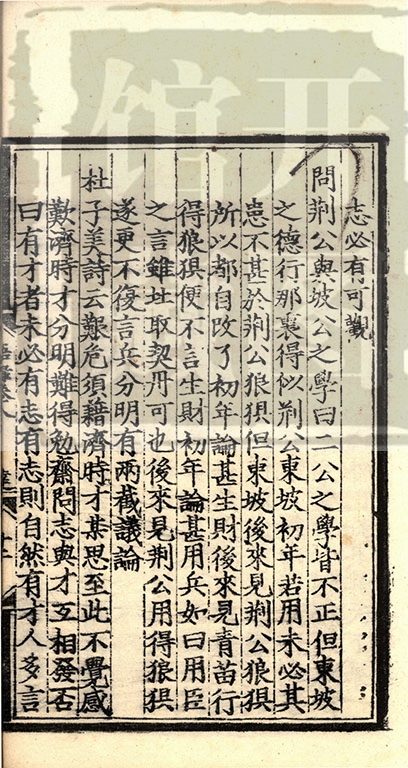 志必有可觀
問荆公與坡公之學曰二公之學皆不正但東坡
之德行那裏得似荆公東坡初年若用未必其
患不甚於荆公狼狽但東坡後來見荆公狼狽
所以都自改了初年論甚生財後來見青苗行
得狼狽便不言生財初年論甚用兵如曰用臣
之言雖北取契丹可也後來見荆公用得狼狽
遂更不復言兵分明有兩截議論
杜子美詩云艱危須藉濟時才某思至此不覺感
歎濟時才分明難得勉齋問志與才互相發否
曰有才者未必有志有志則自然有才人多言